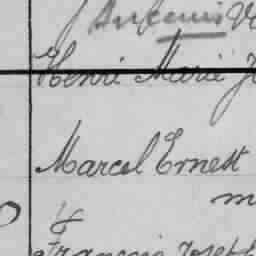 Antonis
Henri Marie
Marcel Ernest
m
François Joseph